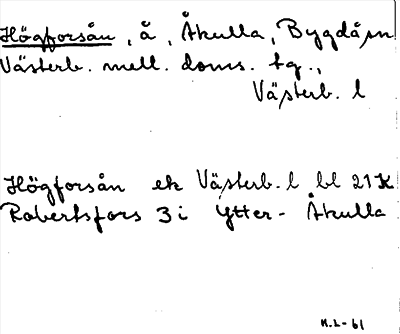 Högforsån, å, Åkulla, Bygdå sn
Västerb. mell. doms. tg.,
Västerb. l
Högforsån ek Västerb. l bl 21 K
Robertsfors 3 i Ytter-Åkulla
K.L-61